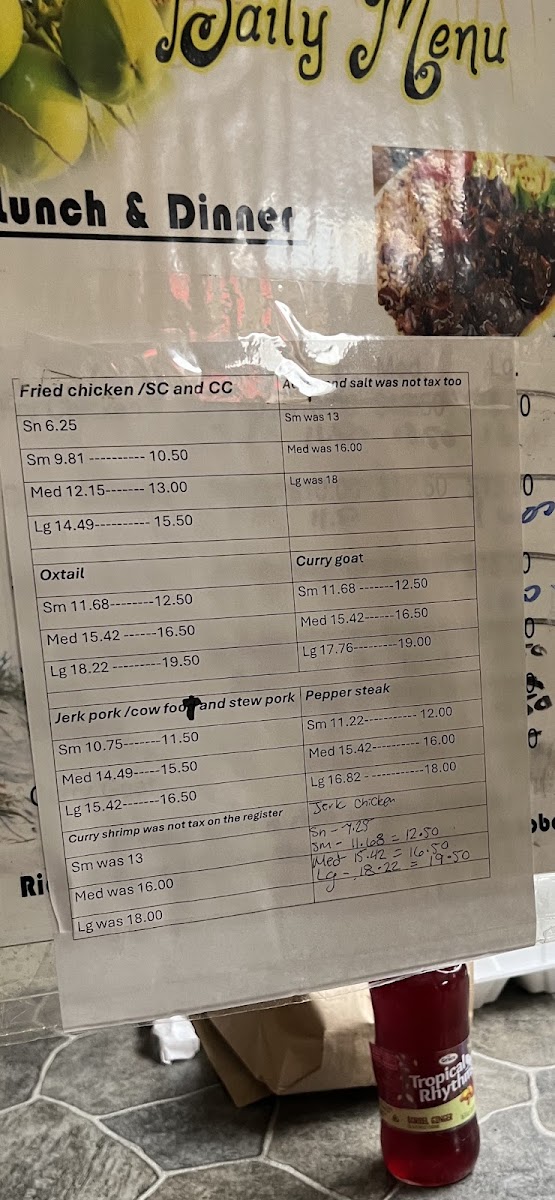 Daily Menu
Lunch & Dinner
Fried chicken /SC and CC
Sn 6.25
Sm 9.81 ---------- 10.50
Med 12.15------- 13.00
Lg 14.49---------- 15.50
and salt was not tax too
Sm was 13
Med was 16.00
Lg was 18
Oxtail
Sm 11.68--------12.50
Med 15.42 ------16.50
Lg 18.22 ---------19.50
Curry goat
Sm 11.68 -------12.50
Med 15.42------16.50
Lg 17.76---------19.00
Jerk pork /cow foot and stew pork
Sm 10.75--------11.50
Med 14.49-----15.50
Lg 15.42-------16.50
Pepper steak
Sm 11.22----------- 12.00
Med 15.42---------- 16.00
Lg 16.82 - ------------18.00
Curry shrimp was not tax on the register
Sm was 13
Med was 16.00
Lg was 18.00
Jerk chicken
Sm - 11.68 = 12.50
Med 15.42 = 16.50
Lg - 18.22 = 19.50
Tropical
Rhythm
SORREL GINGER